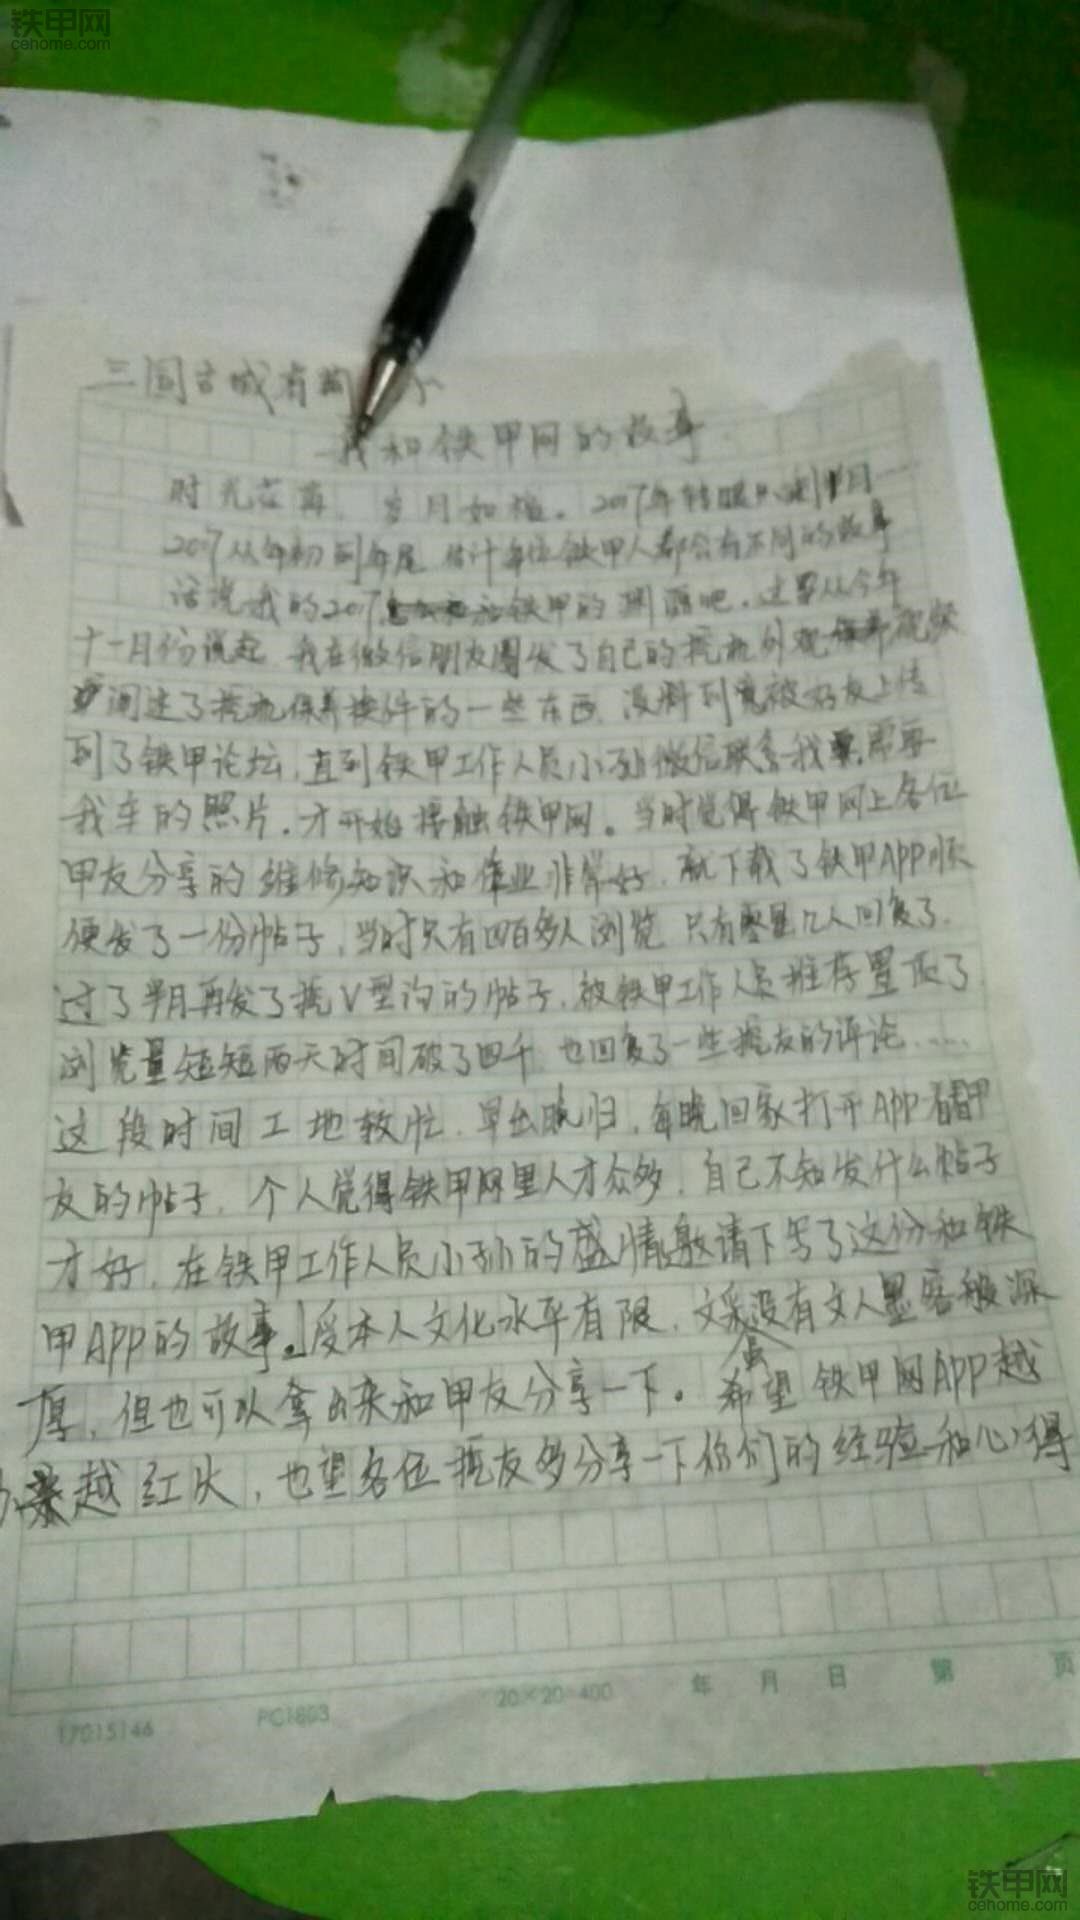 铁甲网
cehome.com
三国古城有
我和铁甲网的故事
时光荏苒，岁月如梭。2017年转眼只剩半月……
2017从年初到年尾 估计每位铁甲人都会有不同的故事
话说我的2017和铁甲的渊源吧，这要从今年
十一月份说起，我在微信朋友圈发了自己的挖机外观视频
阐述了挖机保养换件的一些东西，没料到竟被好友上传
到了铁甲论坛，直到铁甲工作人员小孙微信联系我需要
我车的照片，才开始接触铁甲网。当时觉得铁甲网上各位
甲友分享的维修知识和作业非常好，就下载了铁甲APP顺
便发了一份帖子，当时只有四百多人浏览 只有零星几人回复了，
过了半月再发了挖V型沟的帖子，被铁甲工作人员推荐置顶了
浏览量短短两天时间破了四千 也回复了一些挖友的评论……
这段时间工地较忙，早出晚归，每晚回家打开APP看看甲
友的帖子，个人觉得铁甲网里人才众多，自己不知发什么帖子
才好，在铁甲工作人员小孙的盛情邀请下写了这份和铁
甲APP的故事。受本人文化水平有限，文采没有文人墨客般深
厚，但也可以拿出来和甲友分享一下。希望铁甲网APP越
来越红火，也望各位挖友多分享一下你们的经验和心得
17015146 PC1803 20×20=400 年 月 日 第 页
铁甲网
cehome.com